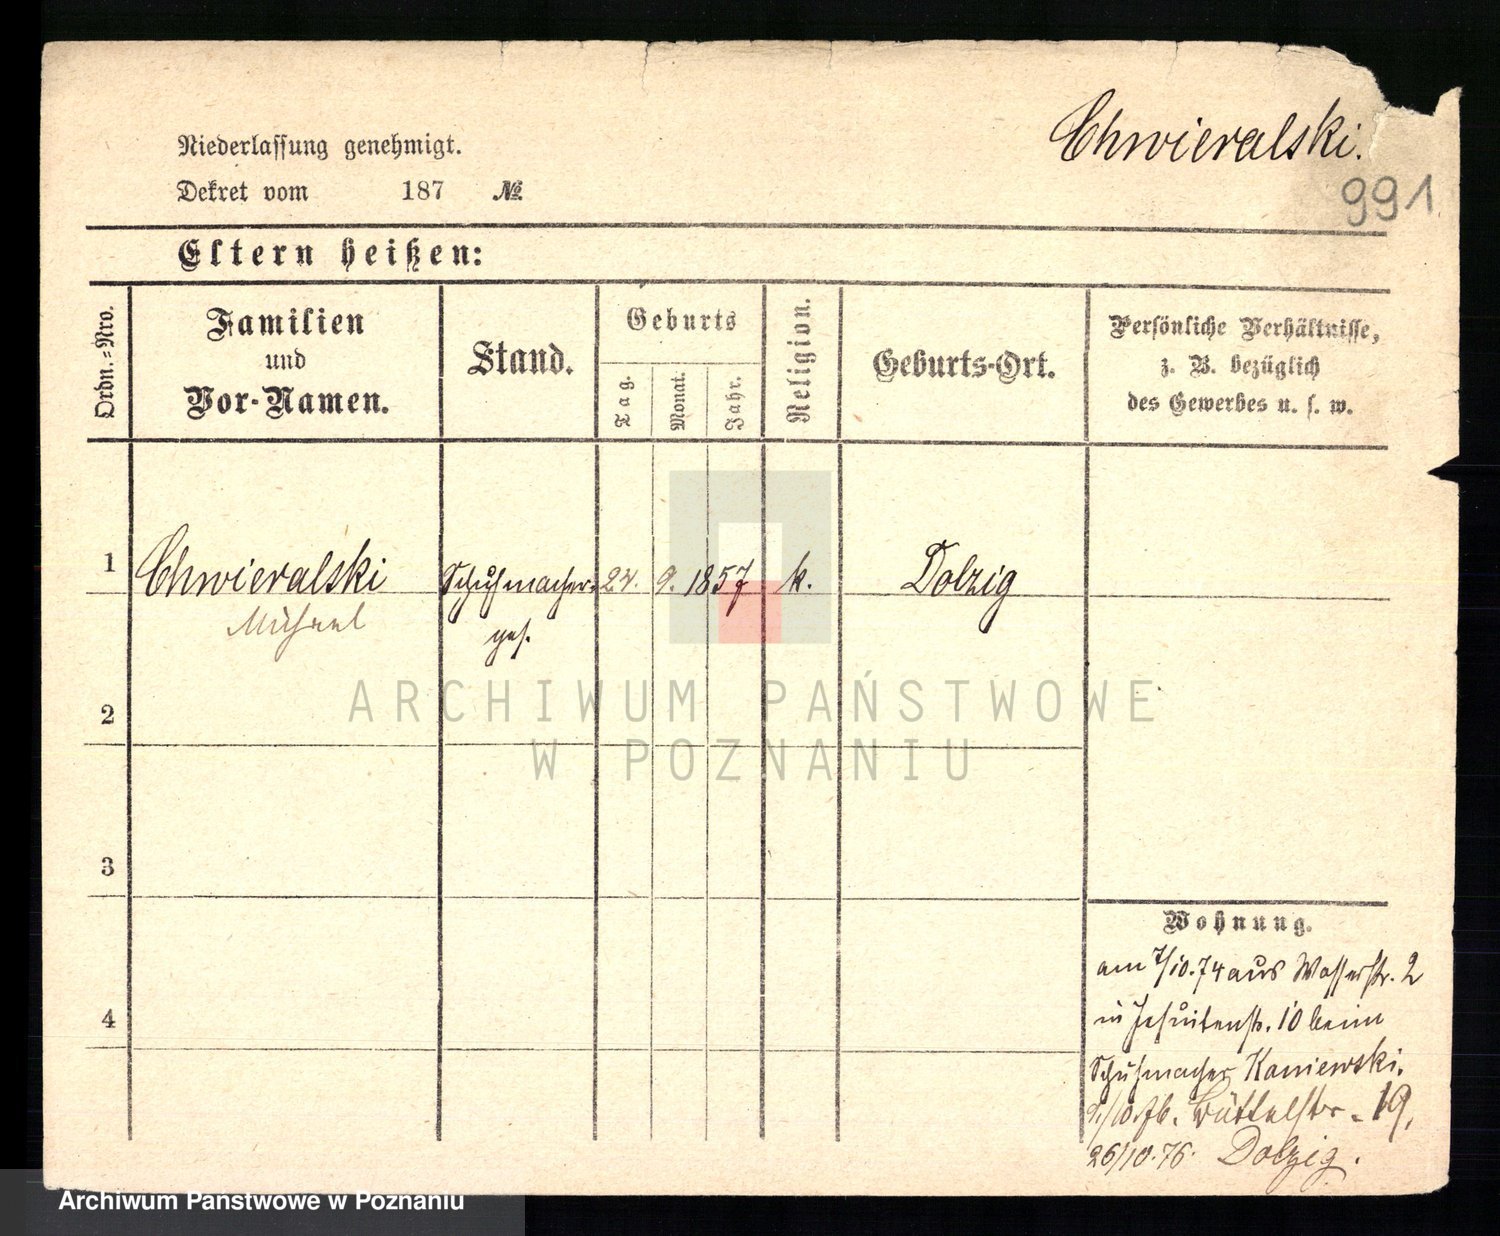 Chwieralski.
991
Niederlassung genehmigt.
Dekret vom 187 №
Eltern heißen:
Ordn.=Nro.
Familien
und
Vor-Namen.
Stand.
Geburts
Tag.
Monat.
Jahr.
Religion.
Geburts-Ort.
Persönliche Verhältnisse,
z. B. bezüglich
des Gewerbes u. s. w.
1 Chwieralski Schuhmacher- 24. 9. 1857 k. Dolzig
Michael ges.
ARCHIWUM PAŃSTWOWE
W POZNANIU
2
3
4
Wohnung.
am 7/10.74 aus Wasserstr. 2
in Jesuitenstr. 10 beim
Schuhmacher Kaniewski.
Büttelstr. 19.
26/10.76. Dolzig.
Archiwum Państwowe w Poznaniu